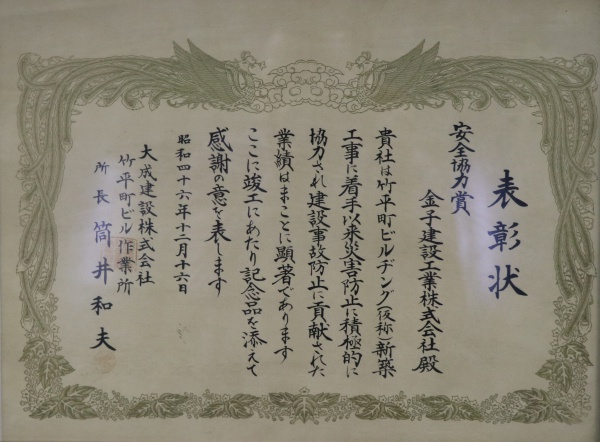 表彰状
安全協力賞
金子建設工業株式会社殿
貴社は竹平町ビルヂング(仮称)新築
工事に着手以来災害防止に積極的に
協力され建設事故防止に貢献された
業績はまことに顕著であります
ここに竣工にあたり記念品を添えて
感謝の意を表します
昭和四十六年十二月十六日
大成建設株式会社
竹平町ビル作業所
所長 筒井和夫